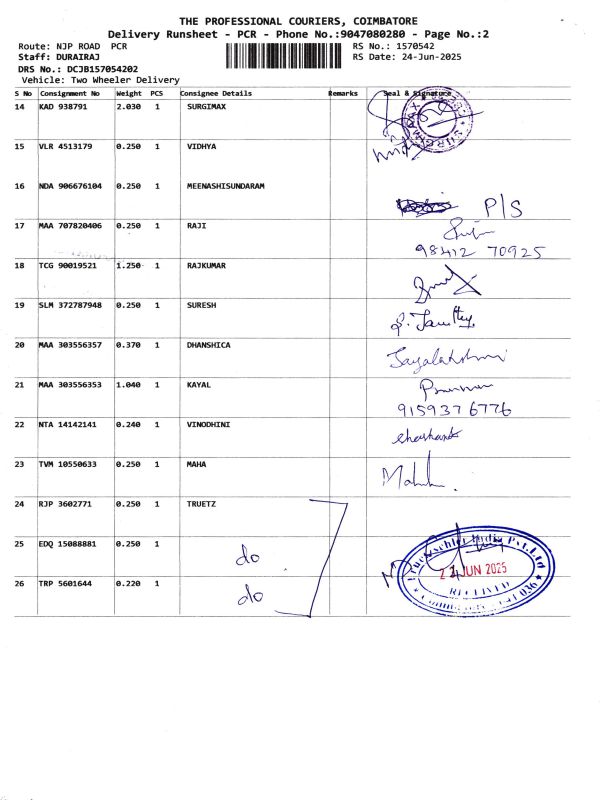 THE PROFESSIONAL COURIERS, COIMBATORE
Delivery Runsheet - PCR - Phone No.:9047080280 - Page No.:2
Route: NJP ROAD PCR
RS No.: 1570542
Staff: DURAIRAJ
RS Date: 24-Jun-2025
DRS No.: DCJB157054202
Vehicle: Two Wheeler Delivery
S No Consignment No Weight PCS Consignee Details Remarks Seal & Signature
14 KAD 938791 2.030 1 SURGIMAX
15 VLR 4513179 0.250 1 VIDHYA
16 NDA 906676104 0.250 1 MEENASHISUNDARAM P/S
17 MAA 707820406 0.250 1 RAJI
98412 70925
18 TCG 90019521 1.250 1 RAJKUMAR
19 SLM 372787948 0.250 1 SURESH
20 MAA 303556357 0.370 1 DHANSHICA Jayalakshmi
21 MAA 303556353 1.040 1 KAYAL
9159376776
22 NTA 14142141 0.240 1 VINODHINI
23 TVM 10550633 0.250 1 MAHA
24 RJP 3602771 0.250 1 TRUETZ
25 EDQ 15088881 0.250 1 do
26 TRP 5601644 0.220 1 do
India Pvt. Ltd
JUN 2025
RECEIVED